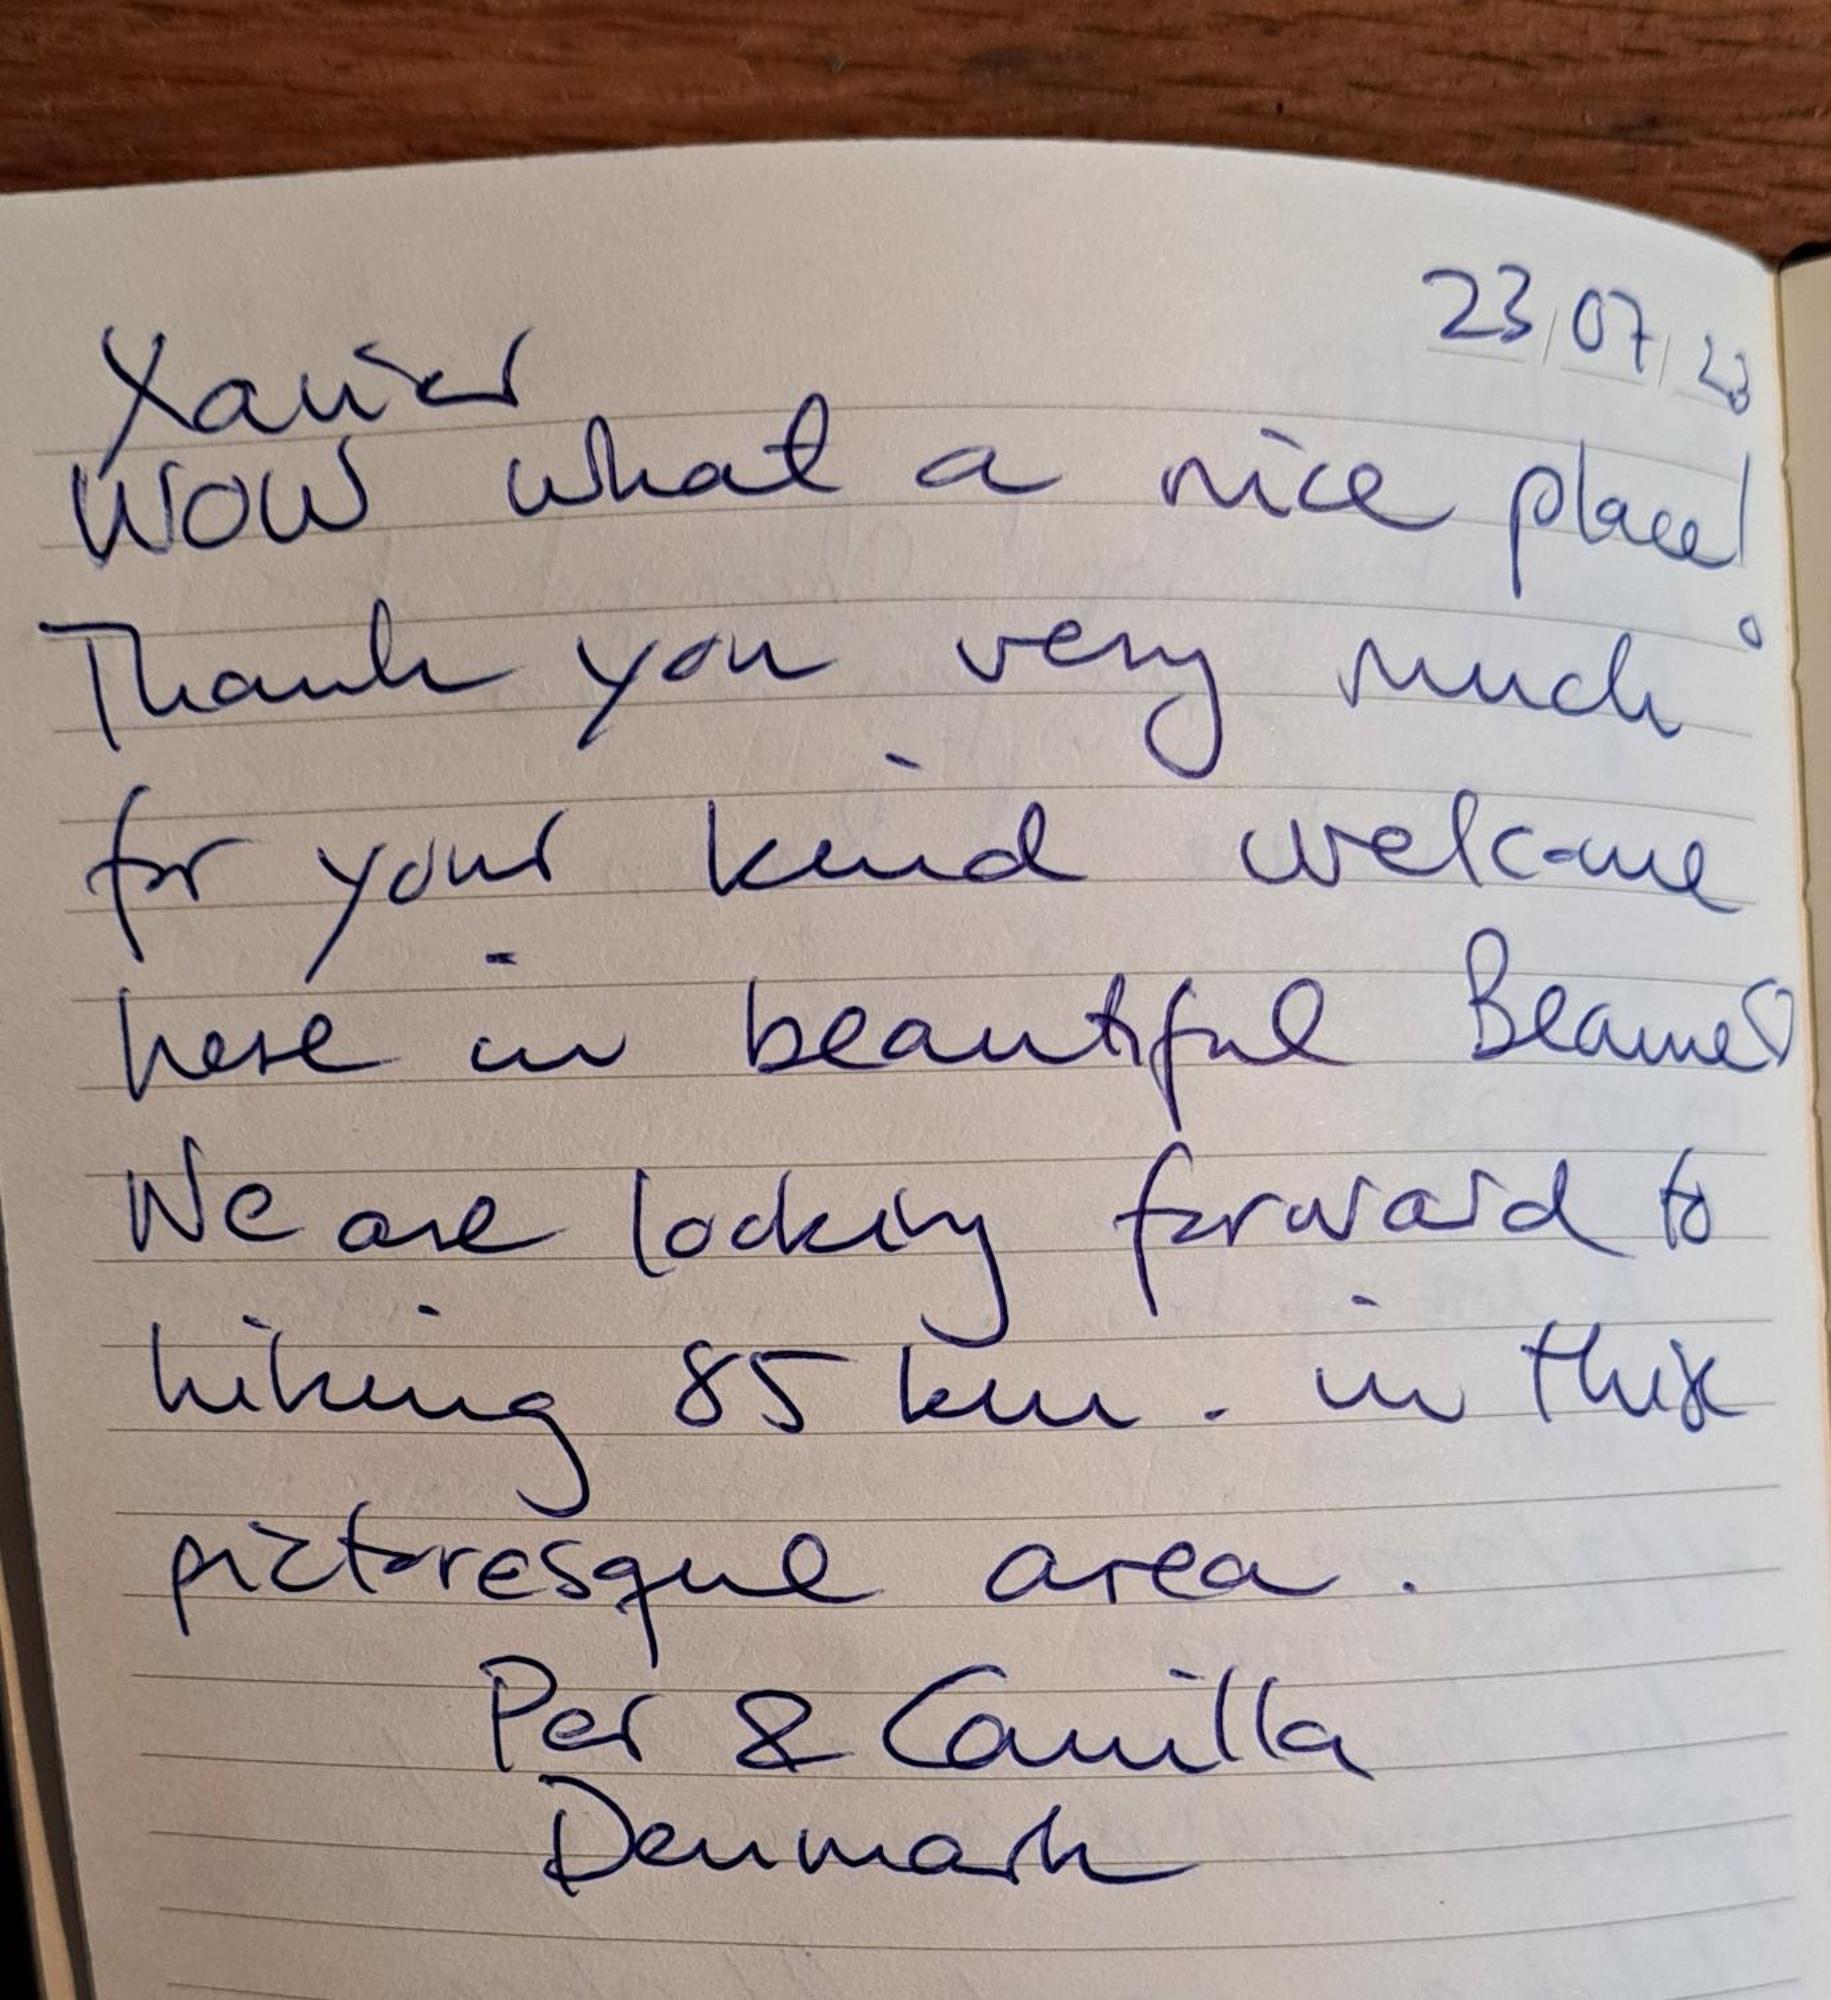 23/07/23
Xavier
WOW what a nice place!
Thank you very much
for your kind welcome
here in beautiful
We are looking forward to
hiking 85 km. in this
picturesque area.
Per & Camilla
Denmark